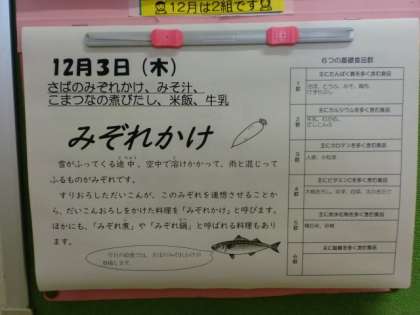 12月は2組です
12月3日（木）
さばのみぞれかけ、みそ汁、
こまつなの煮びたし、米飯、牛乳
みぞれかけ
雪がふってくる途中、空中で溶けかかって、雨と混じって
ふるものがみぞれです。
すりおろしただいこんが、このみぞれを連想させることか
ら、だいこんおろしをかけた料理を「みぞれかけ」と呼びます。
ほかにも、「みぞれ煮」や「みぞれ鍋」と呼ばれる料理もあり
ます。
今日の給食では、さばのみぞれかけが
登場します。
6つの基礎食品群
主にたんぱく質を多く含む食品
1群
主にカルシウムを多く含む食品
2群
牛乳、
主にカロテンを多く含む食品
3群
人参、小松菜
主にビタミンCを多く含む食品
4群
主に炭水化物を多く含む食品
5群
精白米、砂糖
主に脂肪を多く含む食品
6群